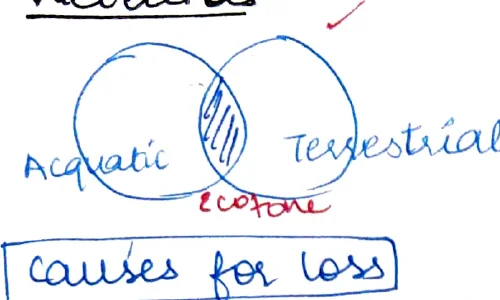 Acquatic Terrestrial
Ecotone
causes for loss